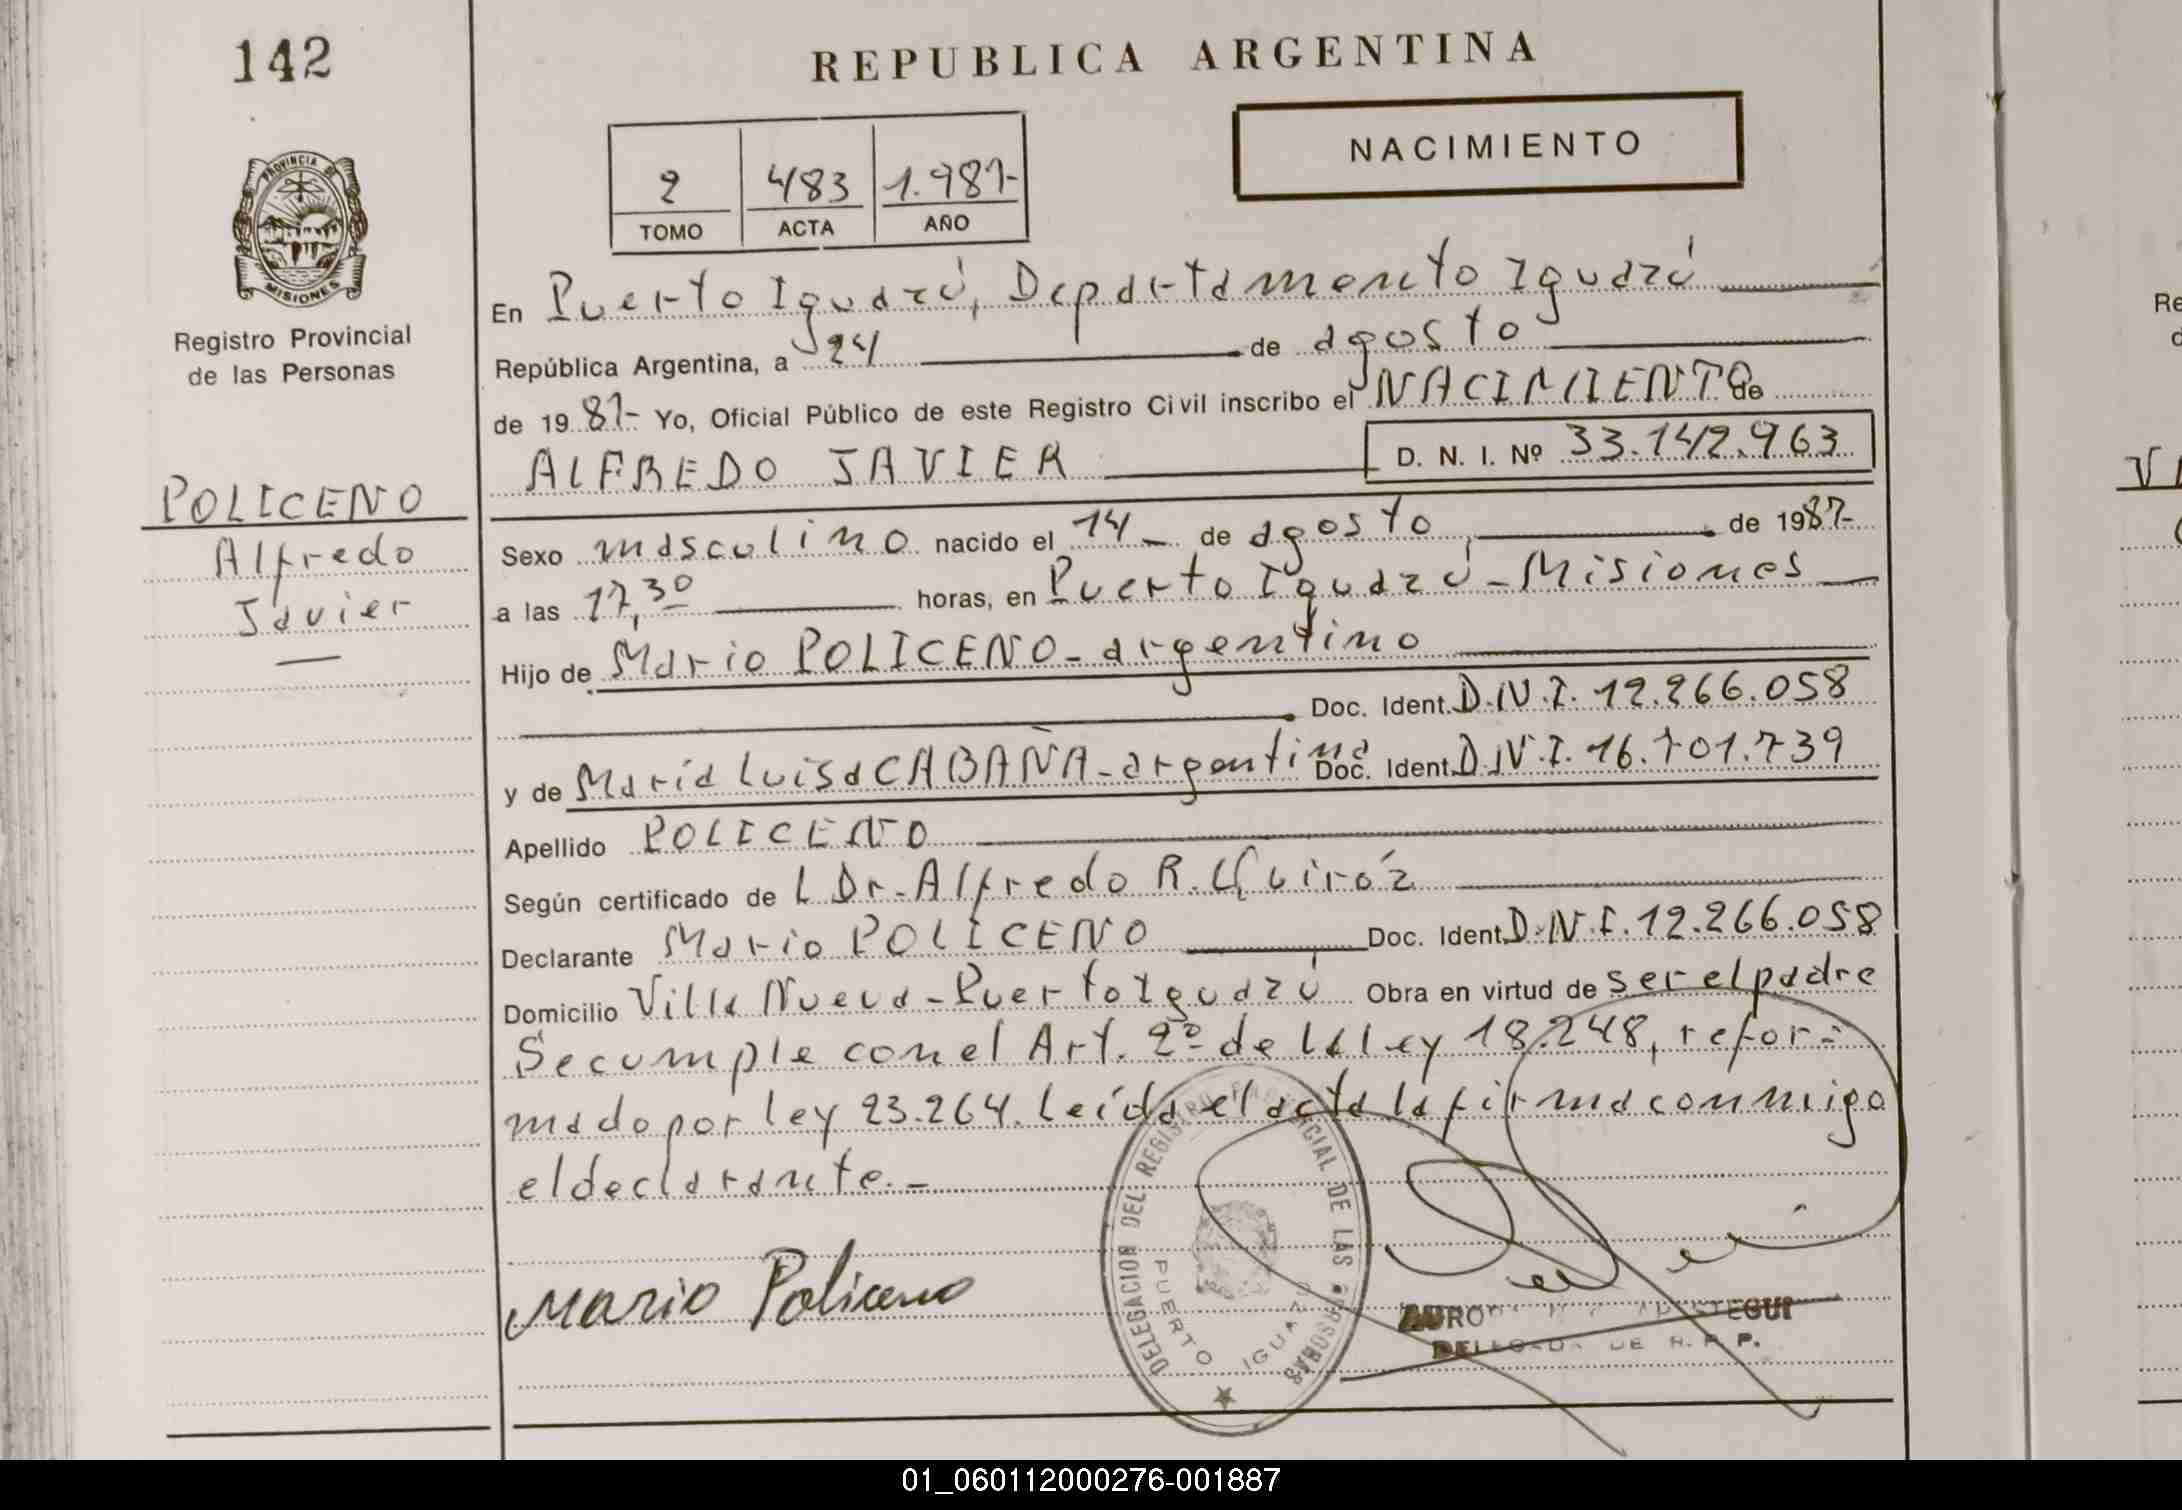 142
REPUBLICA ARGENTINA
NACIMIENTO
2 483 1.987-
TOMO ACTA AÑO
PROVINCIA DE
MISIONES
Registro Provincial
de las Personas
POLICENO
Alfredo
Javier
En Puerto Iguazú, Departamento Iguazú
República Argentina, a 24 de agosto
de 1987- Yo, Oficial Público de este Registro Civil inscribo el NACIMIENTO de
ALFREDO JAVIER D. N. I. Nº 33.142.963
Sexo masculino nacido el 14 - de agosto de 1987-
a las 17,30 horas, en Puerto Iguazú - Misiones
Hijo de Mario POLICENO - argentino
Doc. Ident. D.N.I. 12.266.058
y de María Luisa CABAÑA - argentina Doc. Ident. D.N.I. 16.701.739
Apellido POLICENO
Según certificado de L Dr. Alfredo R. Quiróz
Declarante Mario POLICENO Doc. Ident. D.N.I. 12.266.058
Domicilio Villa Nueva - Puerto Iguazú Obra en virtud de ser el padre
Se cumple con el Art. 2º de la ley 18.248, refor=
mado por ley 23.264. Leída el acta la firma conmigo
el declarante.-
Mario Policeno
DELEGACION DEL REGISTRO PROVINCIAL DE LAS PERSONAS
PUERTO IGUAZU
DELEGADA DE R. P. P.
V
Re
d
01_060112000276-001887